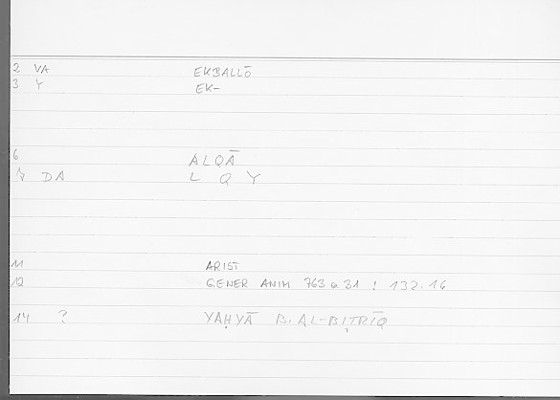 2 VA EKBALLŌ
3 Y EK-
6 ALQĀ
7 DA L Q Y
11 ARIST
12 GENER ANIM 763 a 31 : 132.16
14 ? YAḤYĀ B. AL-BIṬRĪQ